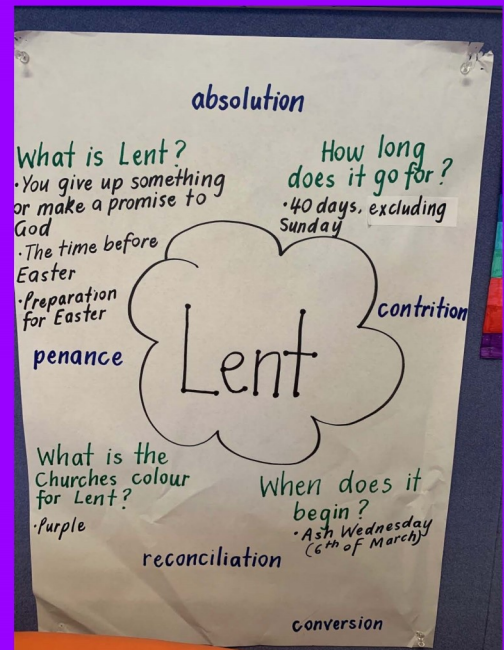 absolution
What is Lent?
·You give up something
or make a promise to
God
·The time before
Easter
·Preparation
for Easter
How long
does it go for?
·40 days, excluding
Sunday
contrition
penance
Lent
What is the
Churches colour
for Lent?
·Purple
When does it
begin?
·Ash Wednesday
(6th of March)
reconciliation
conversion